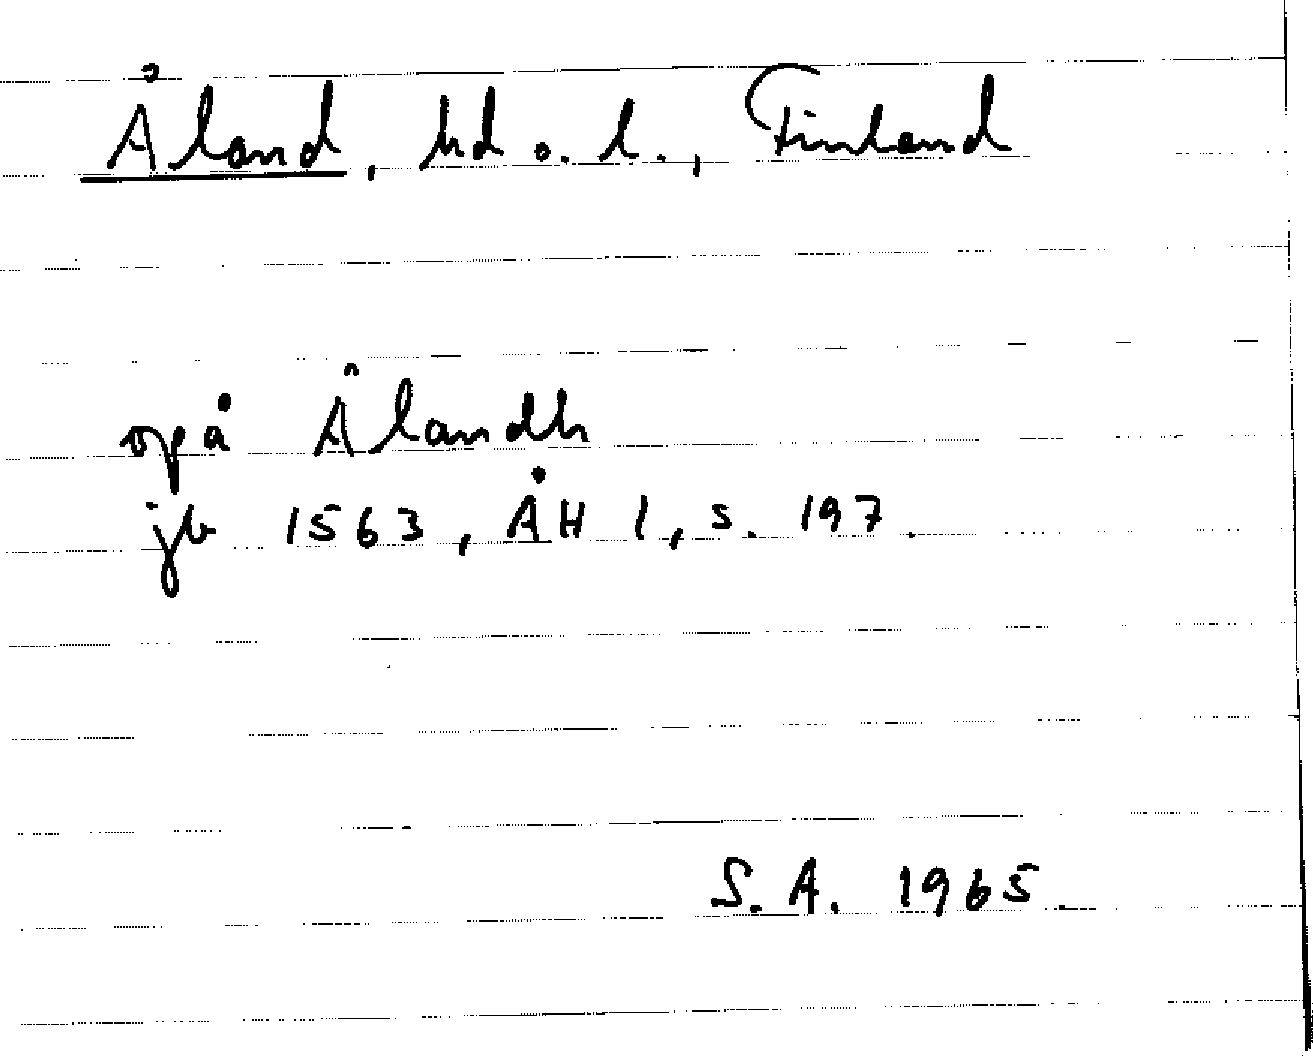 Åland, hd o. l., Finland
opå Ålandh
jb 1563, ÅH 1, s. 197.
S.A. 1965.